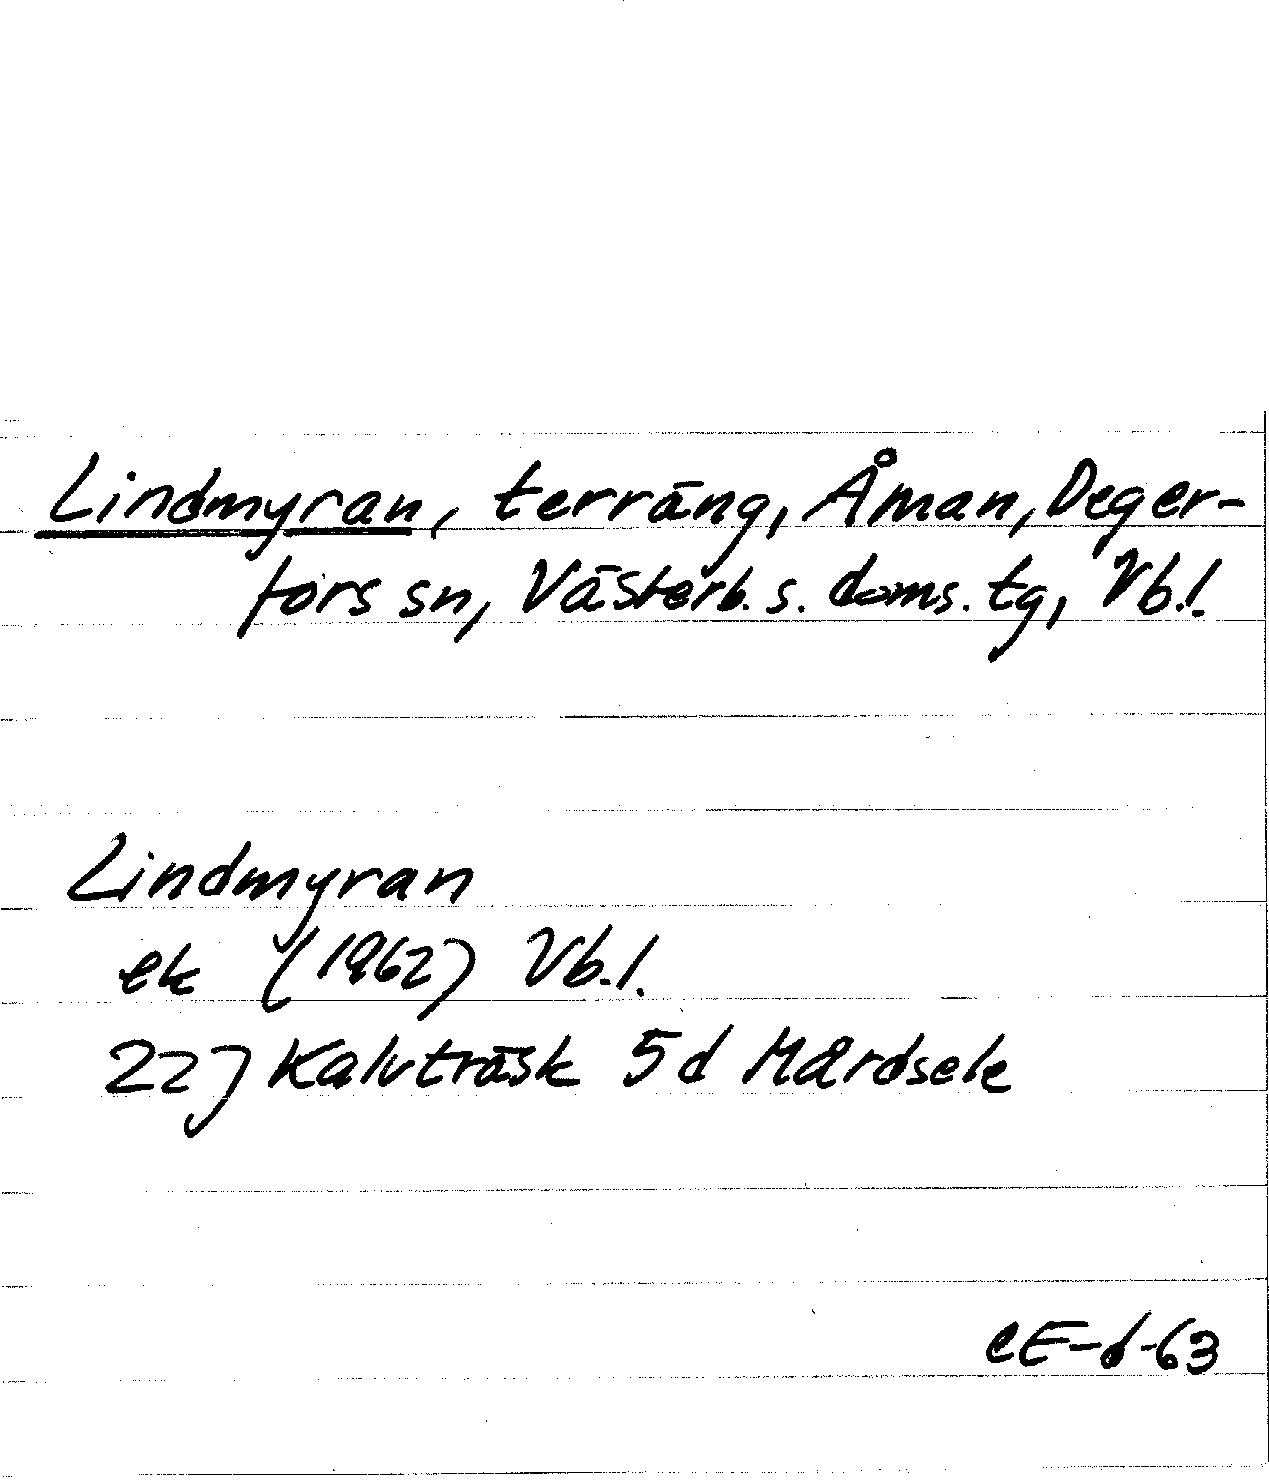 Lindmyran, terräng, Åman, Deger-
fors sn, Västerb. s. doms. tg, Vb.l.
Lindmyran
ek (1962) Vb.l.
22J Kalvträsk 5d Mårdsele
CE-d-63